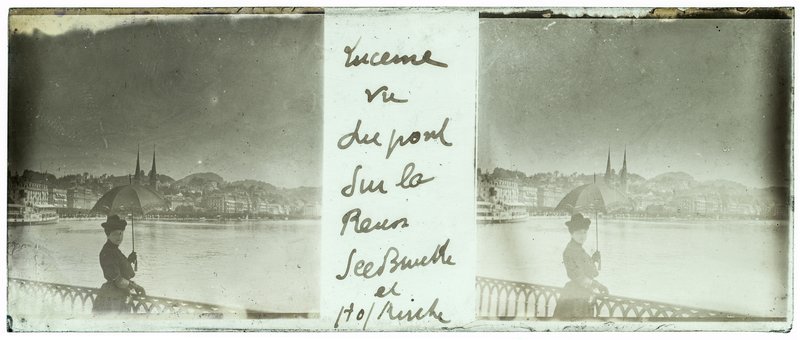 Lucerne
vu
du pont
sur la
Reuss
SeeBrucke
et
Hofkirche